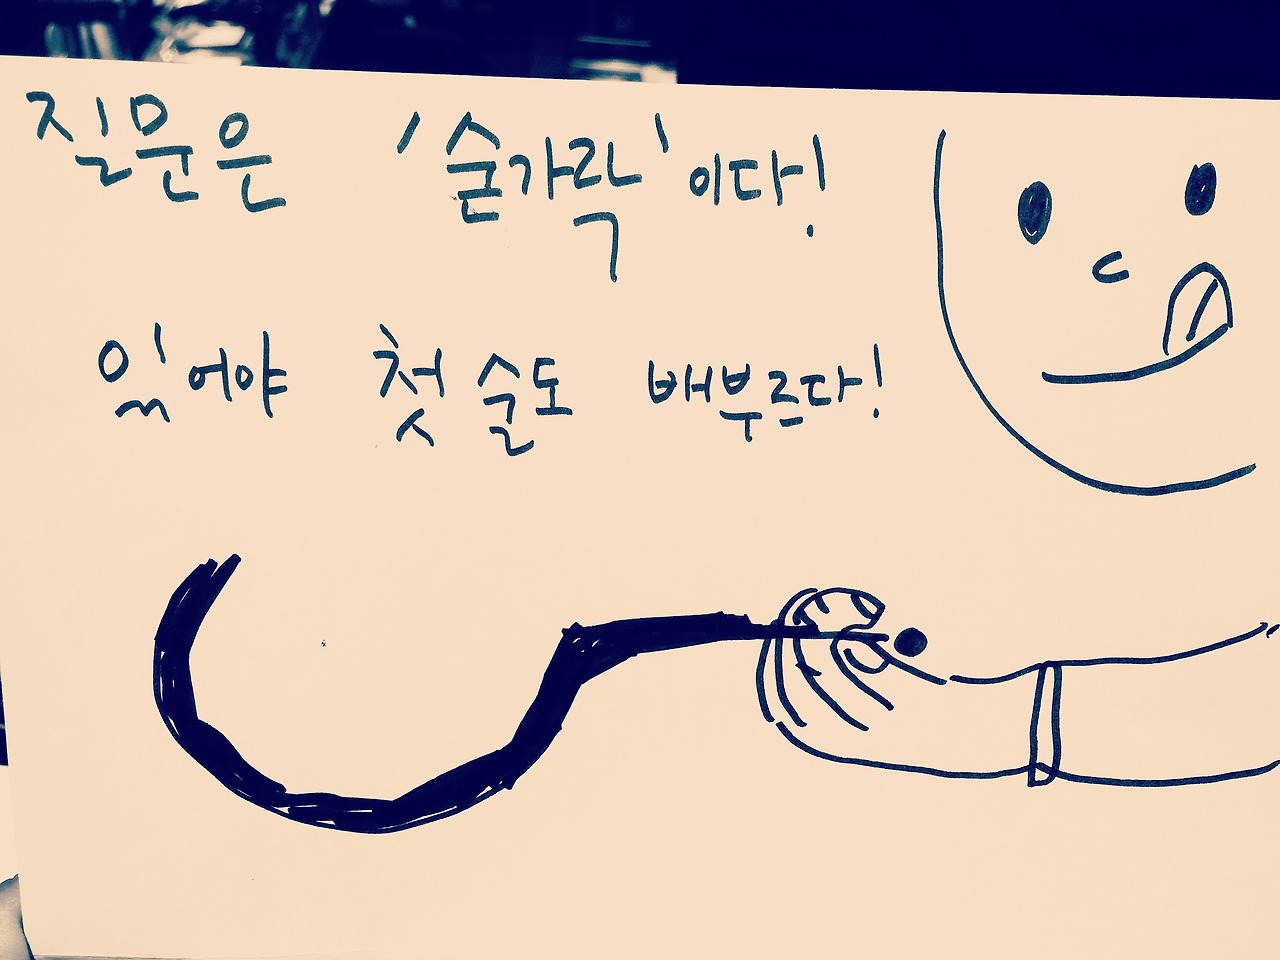 질문은 '숟가락'이다!
있어야 첫 술도 배부르다!